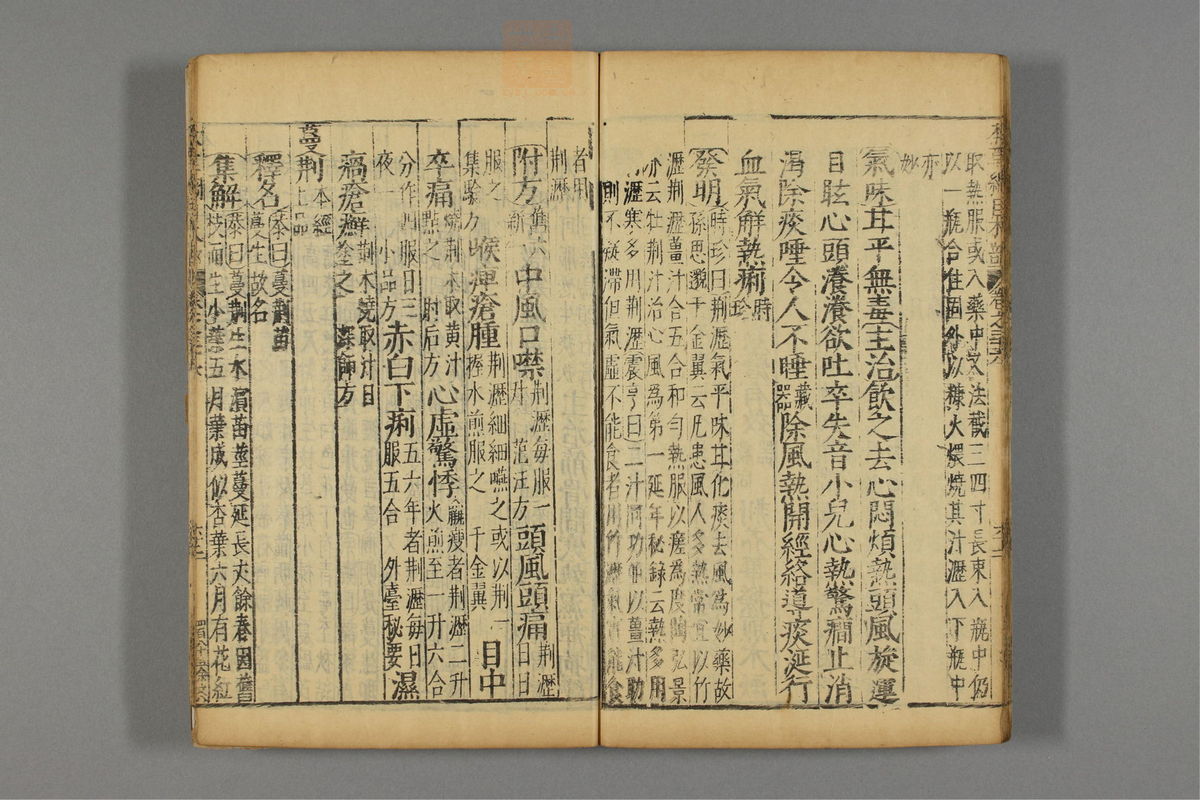 取熱服或入藥中又法截三四寸長束入瓶中仍
以一瓶合住固外以糠火煨燒其汁瀝入下瓶中
亦妙
氣味甘平無毒主治飲之去心悶煩熱頭風旋運
目眩心頭瀁瀁欲吐卒失音小兒心熱驚癇止消
渴除痰唾令人不睡藏器除風熱開經絡導痰涎行
血氣解熱痢時珍
發明時珍曰荆瀝氣平味甘化痰去風為妙藥故
孫思邈千金翼云凡患風人多熱常宜以竹
瀝荆瀝薑汁合五合和勻熱服以瘥為度陶弘景
亦云牡荆汁治心風為第一延年秘錄云熱多用
荆瀝寒多用荆瀝震亨曰二汁同功並以薑汁助
則不凝滯但氣虛不能食者用竹瀝氣實能食
者用荆瀝
附方舊六新 中風口噤荆瀝每服一升 范汪方 頭風頭痛荆瀝日日
服之 集驗方 喉痺瘡腫荆瀝細細嚥之或以荆一握水煎服之 千金翼 目中
卒痛燒荆木取黃汁點之 肘后方 心虛驚悸羸瘦者荆瀝二升火煎至一升六合
分作四服日三夜一 小品方 赤白下痢五六年者荆瀝每日服五合 外臺秘要 濕
瘑瘡癬荆木燒取汁日塗之 深師方
蔓荆本經上品
釋名恭曰蔓荆苗蔓生故名
集解恭曰蔓荆生水濱苗莖蔓延長丈餘春因舊
枝而生小葉五月葉成似杏葉六月有花紅